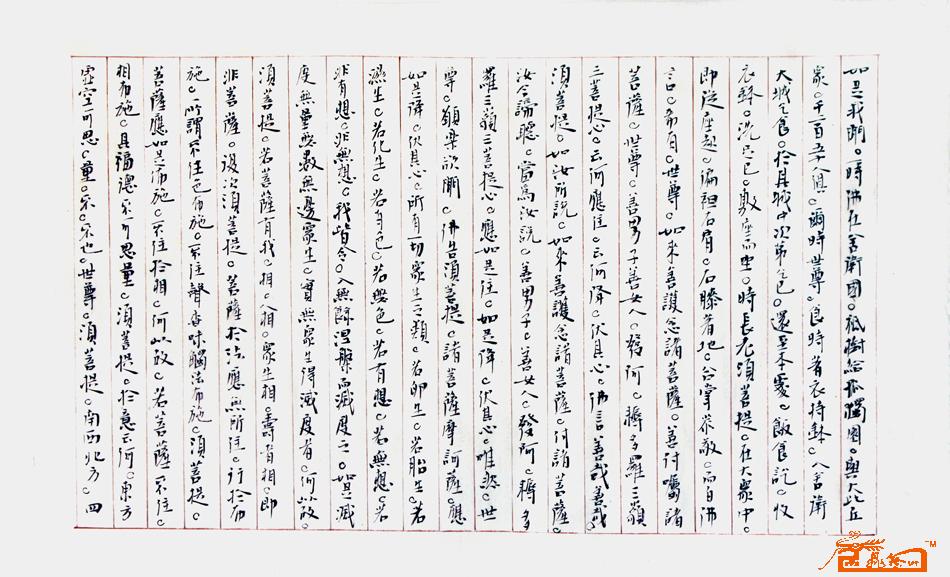 如是我聞。一時佛在舍衛國。祇樹給孤獨園。與大比丘
衆。千二百五十人俱。爾時世尊。食時着衣持鉢。入舍衛
大城乞食。於其城中次第乞已。還至本處。飯食訖。收
衣鉢。洗足已。敷座而坐。時長老須菩提。在大衆中。
即從座起。偏袒右肩。右膝着地。合掌恭敬。而白佛
言。希有。世尊。如來善護念諸菩薩。善付囑諸
菩薩。世尊。善男子善女人。發阿耨多羅三藐
三菩提心。云何應住。云何降伏其心。佛言善哉善哉。
須菩提。如汝所說。如來善護念諸菩薩。付諸菩薩。
汝今諦聽。當爲汝說。善男子。善女人。發阿耨多
羅三藐三菩提心。應如是住。如是降伏其心。唯然。世
尊。願樂欲聞。佛告須菩提。諸菩薩摩訶薩。應
如是降伏其心。所有一切衆生之類。若卵生。若胎生。若
濕生。若化生。若有色。若無色。若有想。若無想。若
非有想。非無想。我皆令入無餘涅槃而滅度之。如是滅
度無量無數無邊衆生。實無衆生得滅度者。何以故。
須菩提。若菩薩有我相。人相。衆生相。壽者相。即
非菩薩。復次須菩提。菩薩於法應無所住。行於布
施。所謂不住色布施。不住聲香味觸法布施。須菩提。
菩薩應如是布施。不住於相。何以故。若菩薩不住
相布施。其福德不可思量。須菩提。於意云何。東方
虛空可思。量。不。不也。世尊。須菩提。南西北方。四